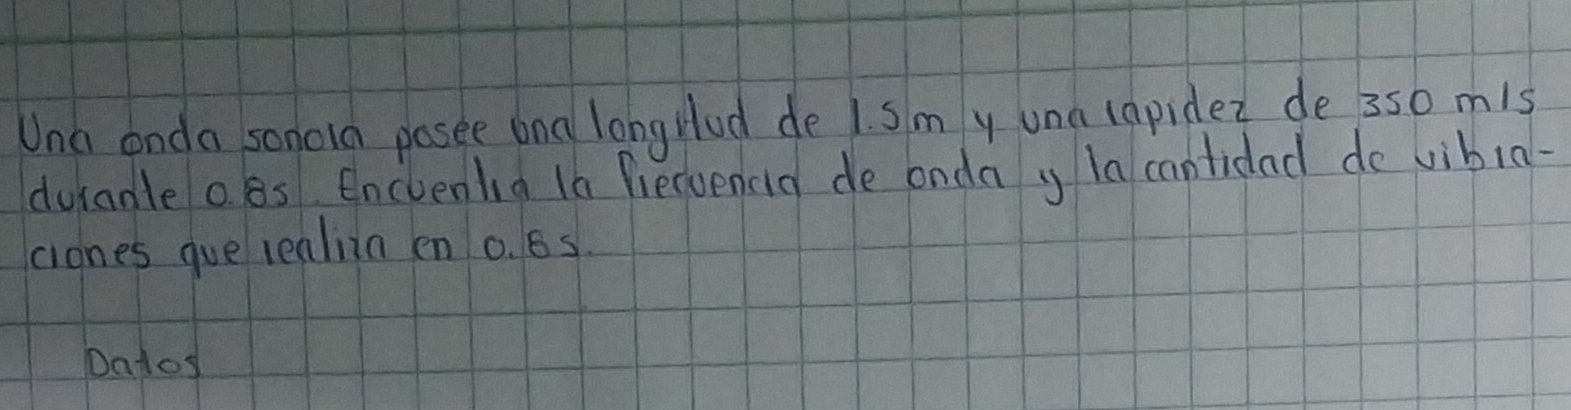 Una onda sonora posee una longitud de 1.5m y una rapidez de 350 m/s
durante 0.8s. Encuentra la frecuencia de onda y la cantidad de vibra-
ciones que realiza en 0.8s.
Datos